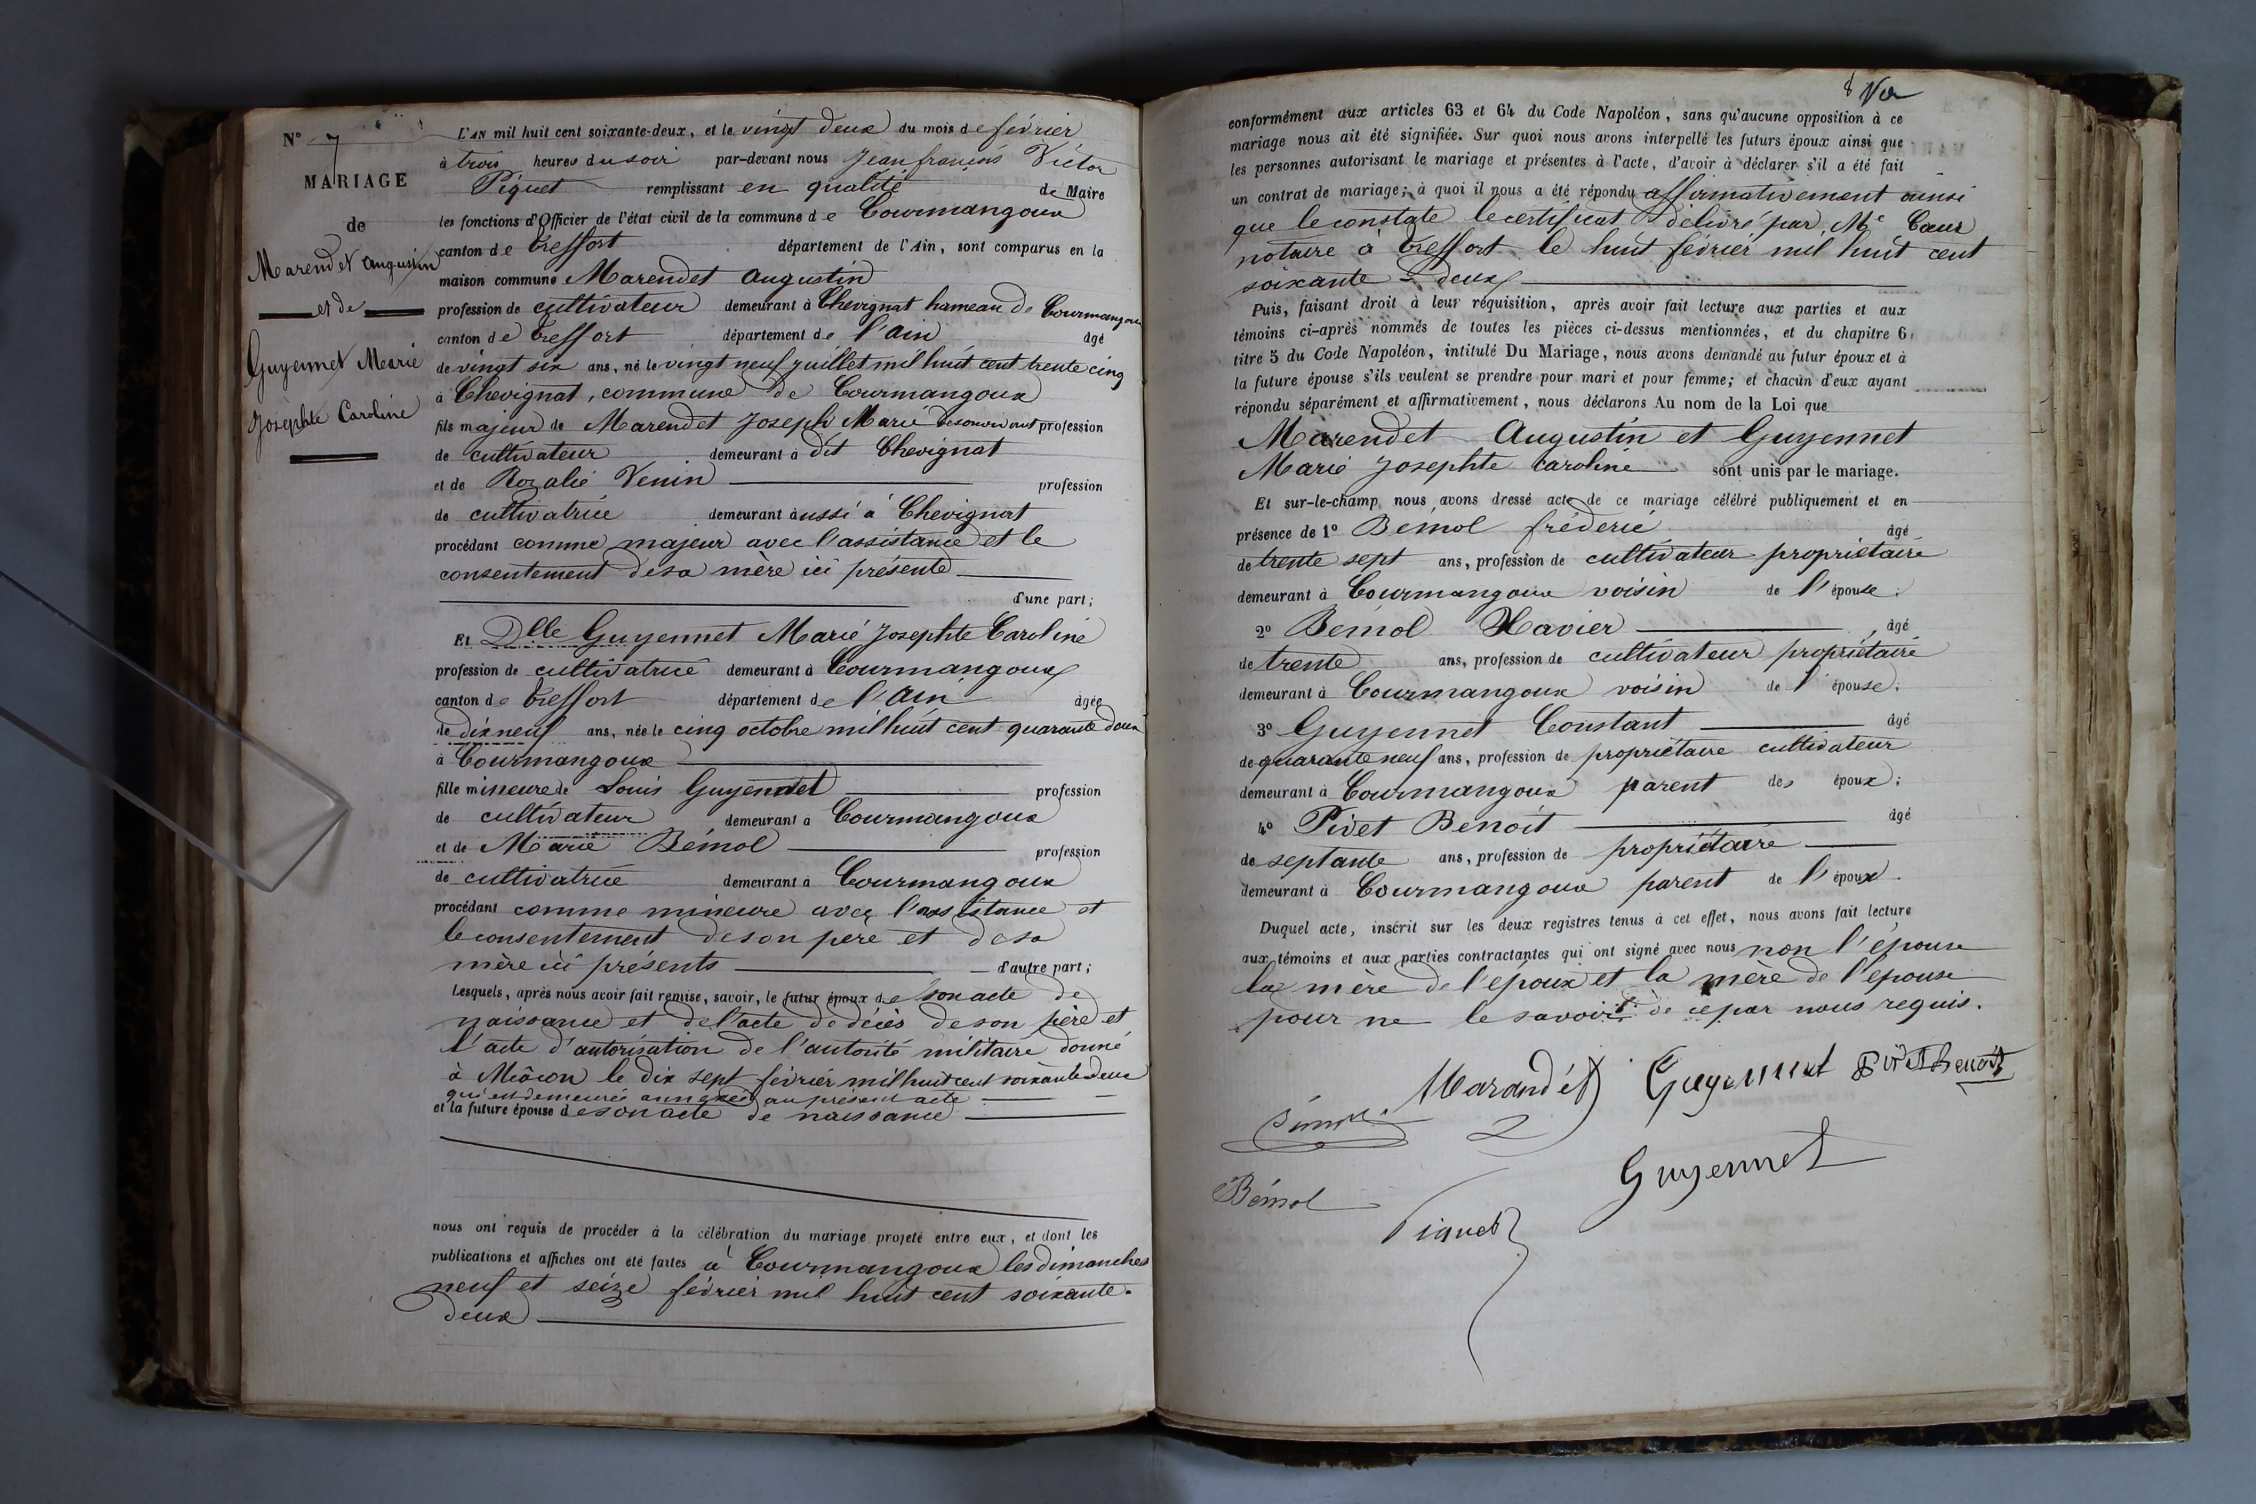 N° 7
MARIAGE
de
Marendet Augustin
et de
Guyennet Marie
Josephte Caroline
L'AN mil huit cent soixante-deux, et le vingt deux du mois de février
à trois heures du soir par-devant nous Jean françois Victor
Piquet remplissant en qualité de Maire
les fonctions d'Officier de l'état civil de la commune de Courmangoux
canton de Treffort département de l'Ain, sont comparus en la
maison commune Marendet Augustin
profession de cultivateur demeurant à Chevignat hameau de Courmangoux
canton de Treffort département de l'Ain âgé
de vingt six ans, né le vingt neuf juillet mil huit cent trente cinq
à Chevignat, commune de Courmangoux
fils majeur de Marendet Joseph Marie profession
de cultivateur demeurant à dit Chevignat
et de Rozalie Venin profession
de cultivatrice demeurant aussi à Chevignat
procédant comme majeur avec l'assistance et le
consentement de sa mère ici présente
d'une part;
Et Dlle Guyennet Marie Josephte Caroline
profession de cultivatrice demeurant à Courmangoux
canton de Treffort département de l'Ain âgée
de dix neuf ans, née le cinq octobre mil huit cent quarante deux
à Courmangoux
fille mineure de Louis Guyennet profession
de cultivateur demeurant à Courmangoux
et de Marie Bémol profession
de cultivatrice demeurant à Courmangoux
procédant comme mineure avec l'assistance et
le consentement de son père et de sa
mère ici présents d'autre part;
Lesquels, après nous avoir fait remise, savoir, le futur époux de son acte de
naissance et de l'acte de décès de son père et
l'acte d'autorisation de l'autorité militaire donné
à Mâcon le dix sept février mil huit cent soixante deux
qui est demeurés annexés au présent acte
et la future épouse de son acte de naissance
nous ont requis de procéder à la célébration du mariage projeté entre eux, et dont les
publications et affiches ont été faites à Courmangoux les dimanches
neuf et seize février mil huit cent soixante-
deux
8
conformément aux articles 63 et 64 du Code Napoléon, sans qu'aucune opposition à ce
mariage nous ait été signifiée. Sur quoi nous avons interpellé les futurs époux ainsi que
les personnes autorisant le mariage et présentes à l'acte, d'avoir à déclarer s'il a été fait
un contrat de mariage; à quoi il nous a été répondu affirmativement ainsi
que le constate le certificat délivré par Me Cœur
notaire à Treffort le huit février mil huit cent
soixante = deux
Puis, faisant droit à leur réquisition, après avoir fait lecture aux parties et aux
témoins ci-après nommés de toutes les pièces ci-dessus mentionnées, et du chapitre 6,
titre 5 du Code Napoléon, intitulé Du Mariage, nous avons demandé au futur époux et à
la future épouse s'ils veulent se prendre pour mari et pour femme; et chacun d'eux ayant
répondu séparément et affirmativement, nous déclarons Au nom de la Loi que
Marendet Augustin et Guyennet
Marie Josephte Caroline sont unis par le mariage.
Et sur-le-champ nous avons dressé acte de ce mariage célébré publiquement et en
présence de 1° Bémol fréderic âgé
de trente sept ans, profession de cultivateur propriétaire
demeurant à Courmangoux voisin de l'épouse;
2° Bémol Xavier âgé
de trente ans, profession de cultivateur propriétaire
demeurant à Courmangoux voisin de l'épouse;
3° Guyennet Constant âgé
de quarante neuf ans, profession de propriétaire cultivateur
demeurant à Courmangoux parent des époux;
4° Pivet Benoit âgé
de septante ans, profession de propriétaire
demeurant à Courmangoux parent de l'époux.
Duquel acte, inscrit sur les deux registres tenus à cet effet, nous avons fait lecture
aux témoins et aux parties contractantes qui ont signé avec nous non l'épouse
la mère de l'époux et la mère de l'épouse
pour ne le savoir de ce par nous requis.
Marandét Guyennet Pivet Benoit
Bémol
Guyennet
Bémol
Piquet